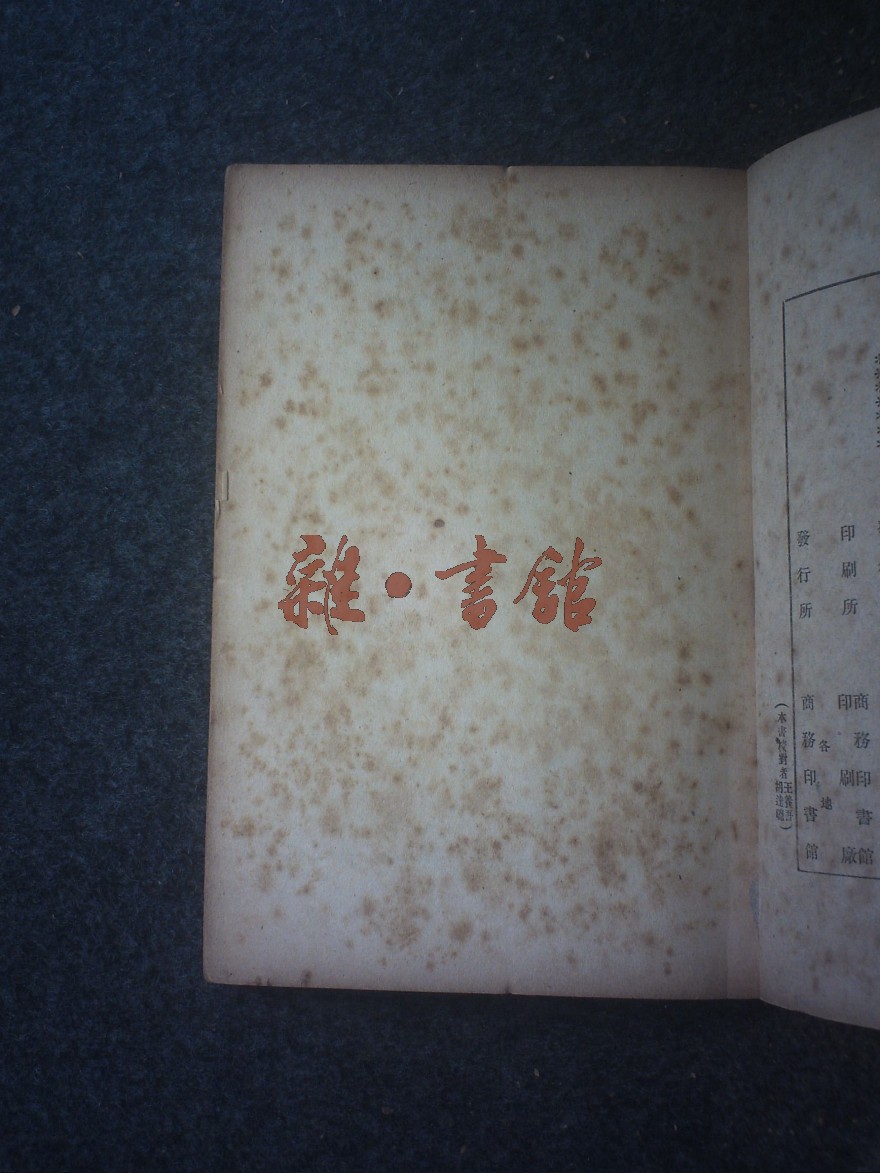 雜·書館
印刷所
商務印書館
印刷廠
發行所
各地
商務印書館
(本書校對者王養吾